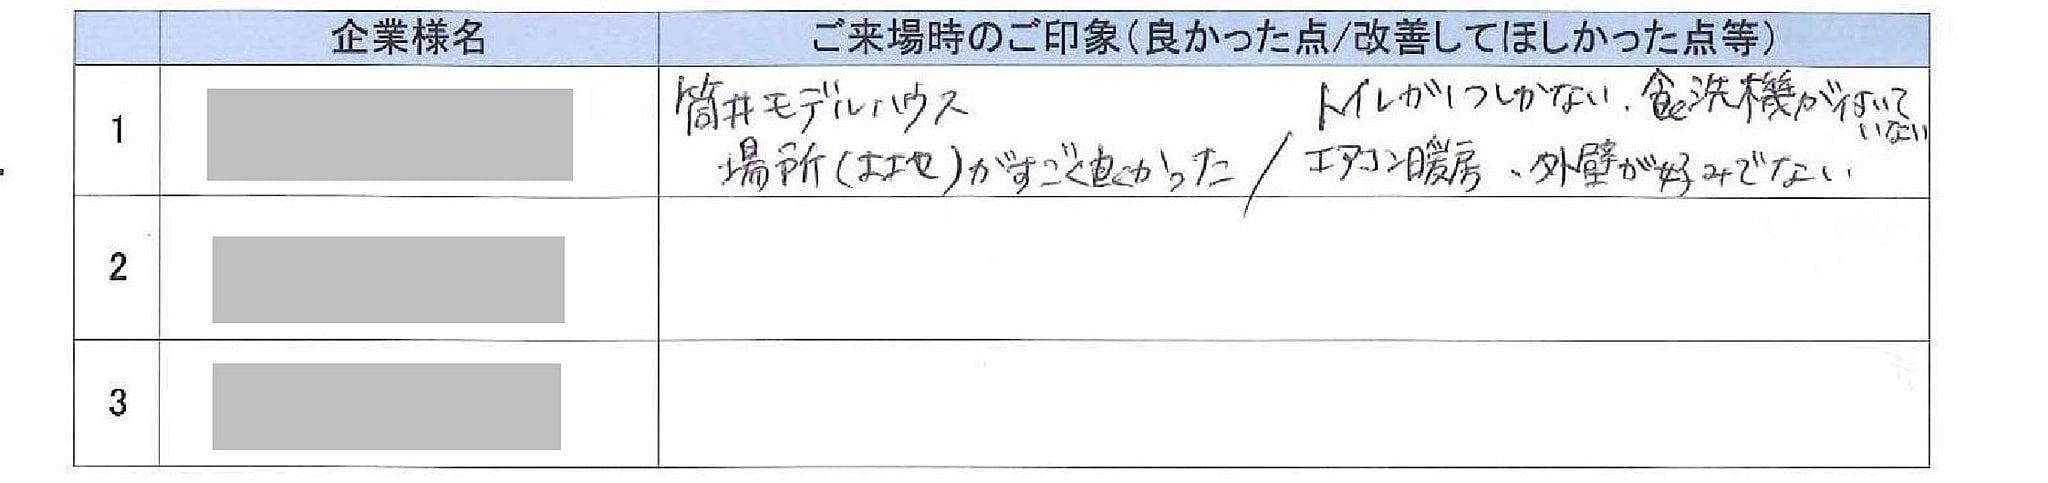 企業様名 ご来場時のご印象(良かった点/改善してほしかった点等)
1
筒井モデルハウス
場所(土地)がすごく良かった /
トイレが1つしかない、食洗機が付いて
いない
エアコン暖房、外壁が好みでない
2
3